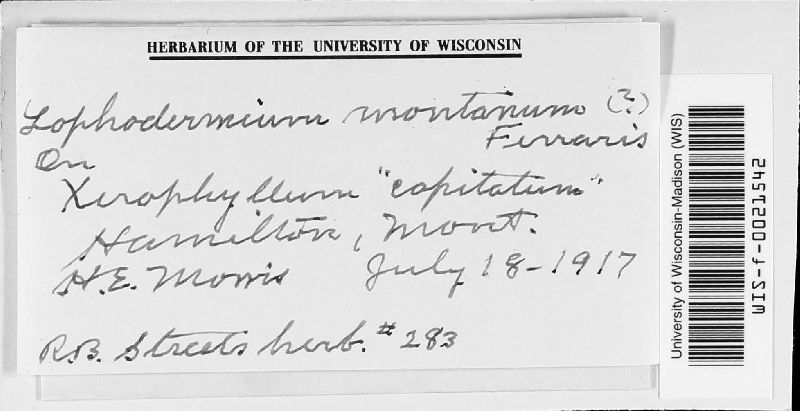 HERBARIUM OF THE UNIVERSITY OF WISCONSIN
Lophodermium montanum (?)
Ferraris
On
Xerophyllum "capitatum"
Hamilton, Mont.
H.E. Morris July 18-1917
R.B. Streets herb. # 283
University of Wisconsin-Madison (WIS)
WIS-f-0021542